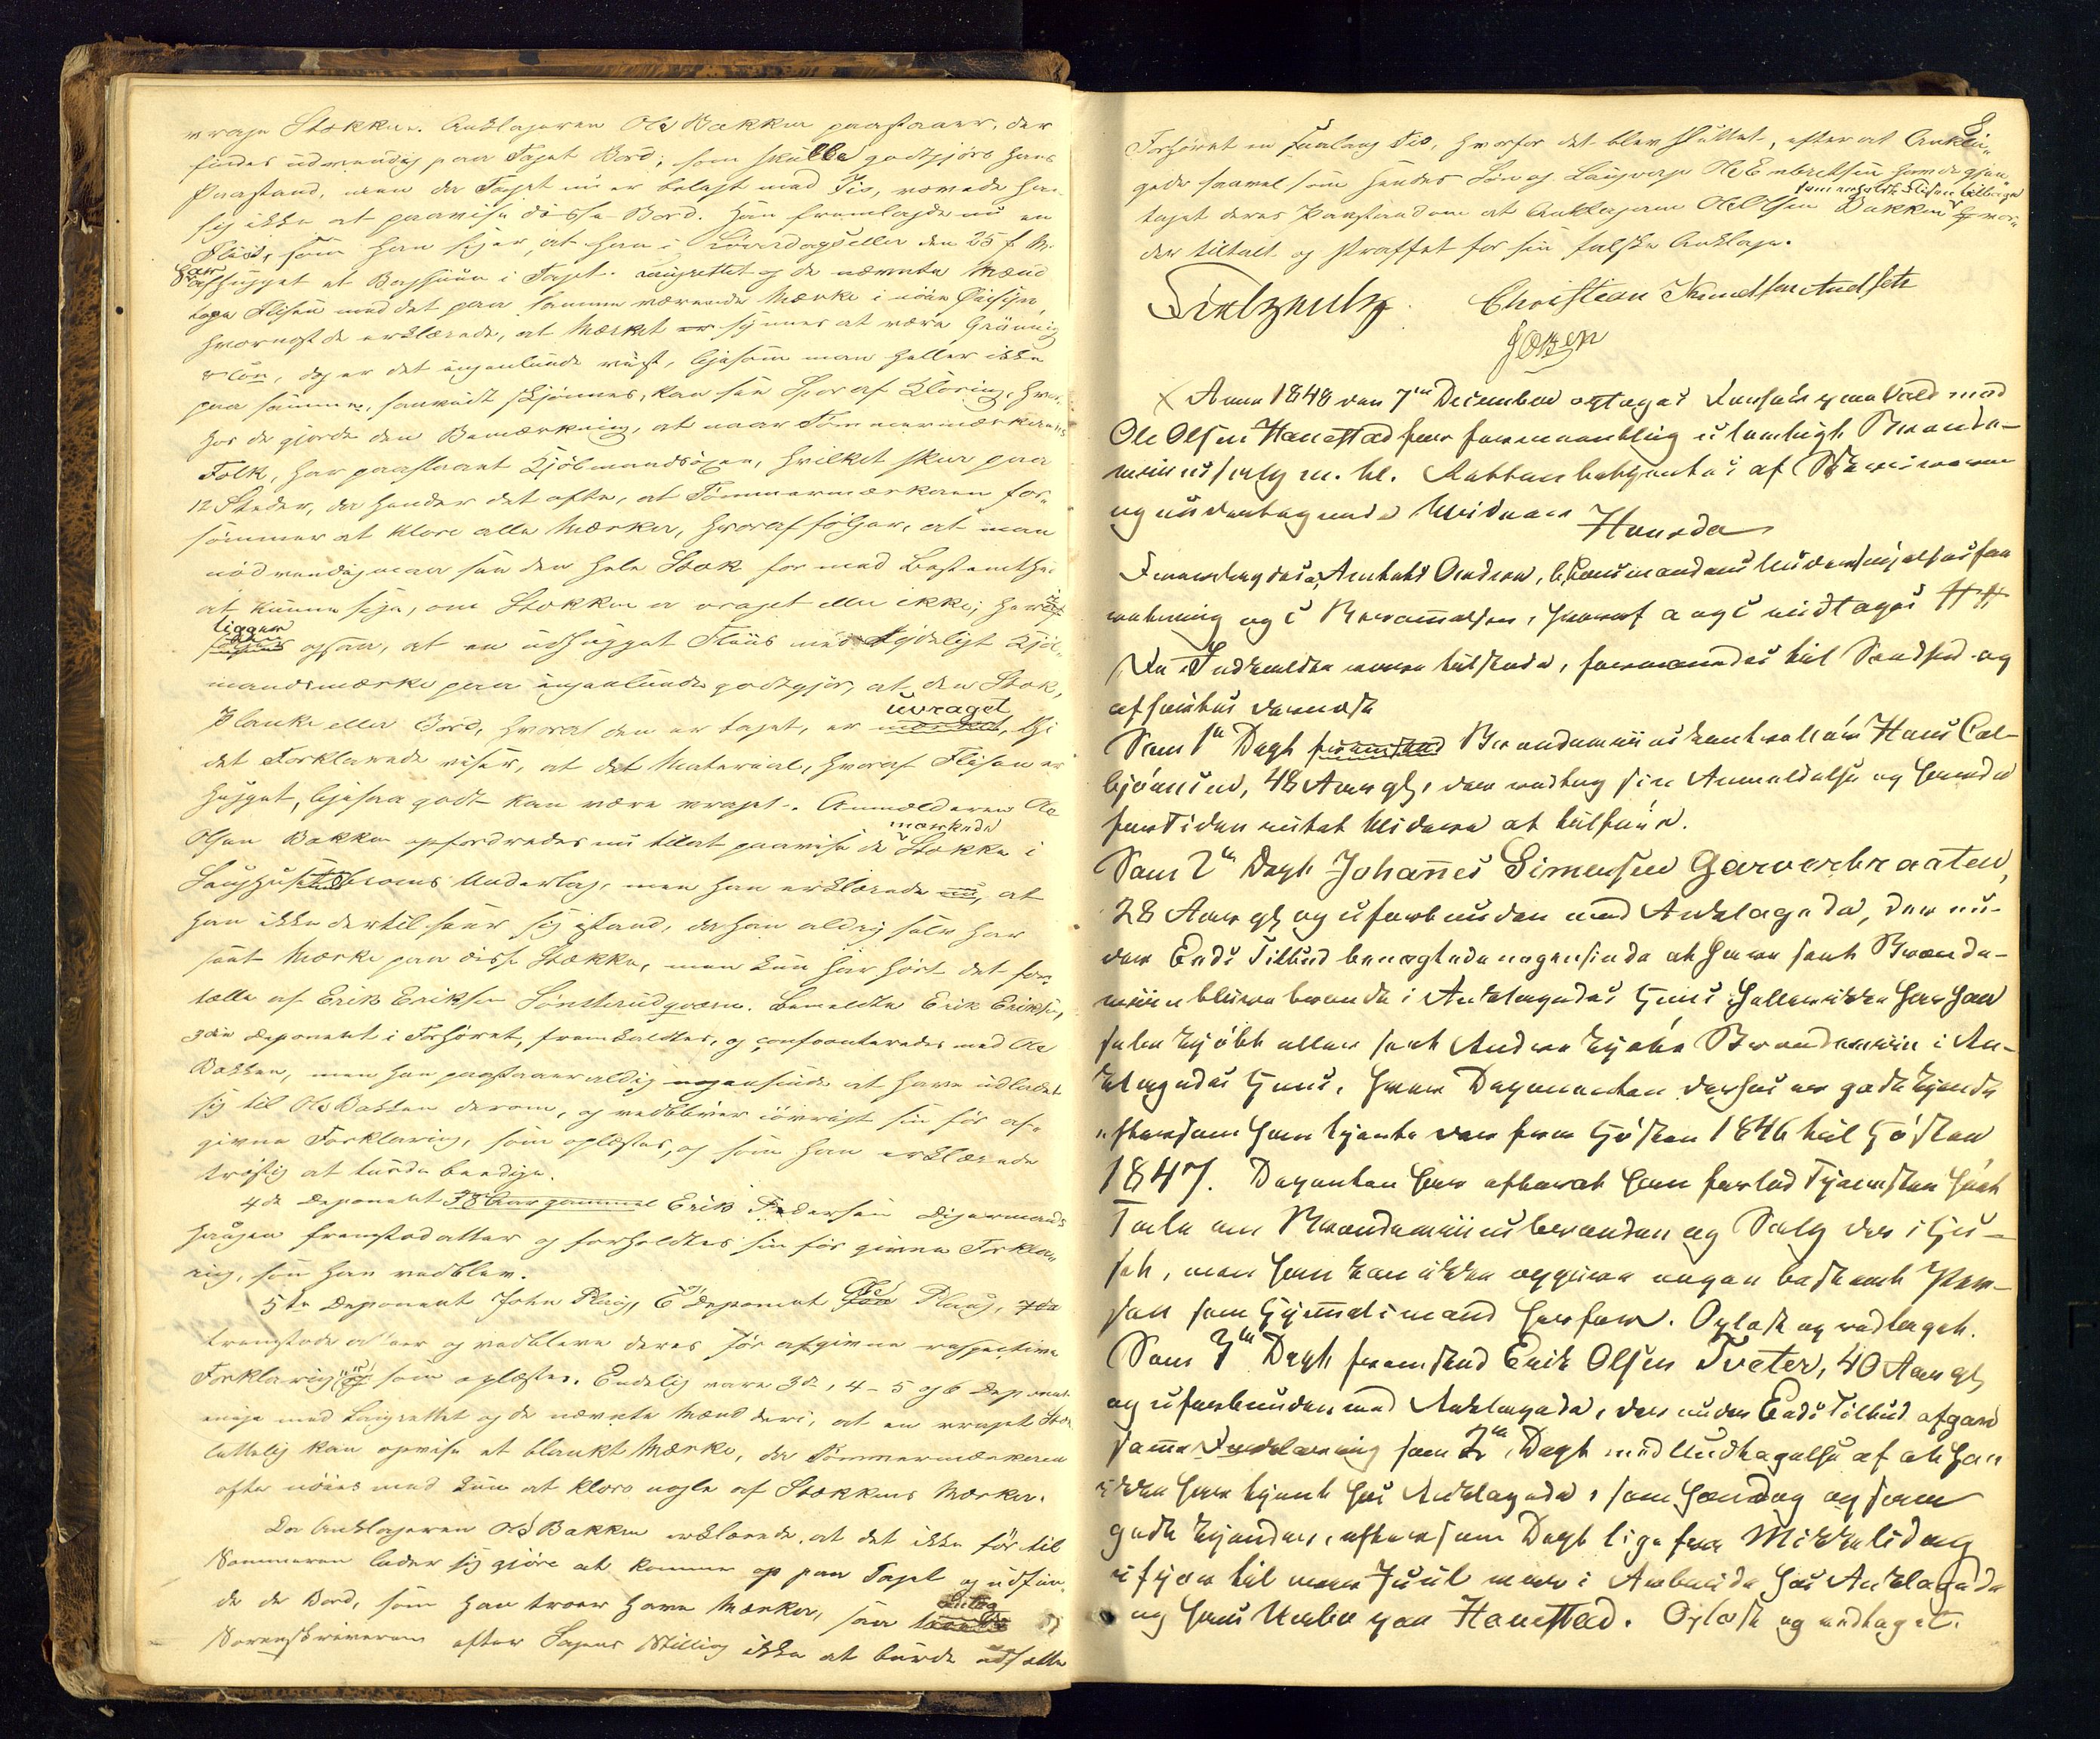 vrage Stokken. Anklageren Ole Bakken paastaaer, der
findes udvendig paa Taget Bord, som skulle godtgjøre hans
Paastand, men da Taget nu er belagt med Iis, vovede han
sig ikke at paavise disse Bord. Han fremlagde nu en
Fliis, som han siger, at han i Løverdags eller den 25 f. M.
har afhugget et Baghuun i Taget. Laugrettet og de nævnte Mænd
tage Flisen med det paa samme værende Mærke i nøie Øiesyn,
hvornæst de erklærede, at Mærket synes at være
dog er det ingenlunde vist, ligesom man heller ikke
paa samme, saavidt skjønnes, kan see Spor af Kloring, hvor-
hos de gjorde den Bemærkning, at naar Tømmermærkerens
Folk, har paaslaaet Kjøbmandsøxen, hvilket skeer paa
12 Steder, da hender det ofte, at Tømmermærkeren for-
sømmer at klore alle Mærker, hvoraf følger, at man
nødvendig maa see den hele Stok for med Bestemthed
at kunne sige, om Stokken er vraget eller ikke; heri
ligger ogsaa, at en udhugget Fliis med tydeligt Kjøb-
mandsmærke paa ingenlunde godtgjør, at den Stok,
Planke eller Bord, hvoraf den er taget, er uvraget, thi
det Forklarede viser, at det Materiale, hvoraf Flisen er
hugget, ligesaa godt kan være vraget. Anmelderen Ole
Olsen Bakken opfordredes nu til at paavise de mærkede Stokke i
Underlag, men han erklærede, at
han ikke dertil seer sig istand, da han aldrig selv har
seet Mærke paa disse Stokke, men kun har hørt det for-
tælle af Erik Eriksen Sønsterudqværn. Bemeldte Erik Eriksen,
3die Deponent i Forhøret, fremkaldtes, og confronteredes med Ole
Bakken, men han paastaaer aldrig nogensinde at have udladet
sig til Ole Bakken derom, og vedbliver iøvrigt sin før af-
givne Forklaring, som oplæstes, og som han erklærede
trøstig at turde beedige.
4de Deponent 38 Aar gammel Erik Pedersen Digermands
haugen fremstod atter og foreholdtes sin før givne Forkla-
ring, som han vedblev.
5te Deponent John Plads, 6 Deponent Ole Plads, 7de
fremstode atter og vedbleve deres før afgivne respective
Forklaringer som oplæstes. Endelig vare 3de, 4 - 5 og 6 Deponent
enige med Laugrettet og de nævnte Mænd deri, at en vraget Stok
lettelig kan opvise et blankt Mærke, da Tømmermærkeren
ofte nøies med kun at klore nogle af Stokkens Mærker.
Da Anklageren Ole Bakken erklærede, at det ikke før til
Sommeren lader sig gjøre at komme op paa Taget og udfin-
de de Bord, som han troer have Mærker, saa antog
Sorenskriveren efter Sagens Stilling ikke at burde udsætte
8
Forhøret en saalang Tid, hvorfor det blev sluttet, efter at Ankla-
gede saavel som hendes Søn og Laugværge Ole Embretsen havde gjen-
taget deres Paastand om at Anklageren Ole Olsen Bakken vor-
der tiltalt og straffet for sin falske Anklage.
Christian Knudsen Audseth
X Anno 1848 den 7de December optoges Forhør paa Vold mod
Ole Olsen Hanestad for formeentlig ulovligt Brænde-
viinssalg m. v. Retten betjentes af Skriveren
og undertegnede Vidner
Fremlagdes a, Amtets Ordre, b, Lensmandens
og c Beramelsen, hvoraf a og c indtages ##
De Indkaldte vare tilstede, formanedes til Sandhed og
afhørtes dernæst
Som 1ste Dept Brændeviinskontrollør Hans Col-
bjørnsen, 48 Aar gl, der vedtog sin Anmeldelse og havde
for Tiden intet Videre at tilføie.
Som 2de Dept Johannes Simensen Garverbraaten,
28 Aar gl og uforbunden med Anklagede, der un-
der Eeds Tilbud benægtede nogensinde at have seet Brænde-
viin blive brændt i Anklagedes Huus. Heller ikke har han
selv kjøbt eller seet Andre kjøbe Brændeviin i An-
klagedes Huus, hvor Deponenten derhos er godt kjendt
eftersom han tjente der fra Høsten 1846 til Høsten
1847. Deponten har efterat han forlod Tjenesten hørt
Tale om Brændeviinsbrænden og Salg der i Hu-
set, men han kan ikke opgive nogen bestemt Per-
son som Hjemmelsmand herfor. Oplæst og vedtaget.
Som 3de Dept fremstod Erik Olsen Tveter, 40 Aar gl,
og uforbunden med Anklagede, der under Eeds Tilbud afgav
samme Forklaring som 2de Dept med Undtagelse af at han
ikke har tjent hos Anklagede, som han dog ogsaa
godt kjender, eftersom Dept lige fra Mikkelsdag
ifjor til over Juul var i Arbeide hos Anklagede
og hans Nabo paa Hanestad. Oplæst og vedtaget.